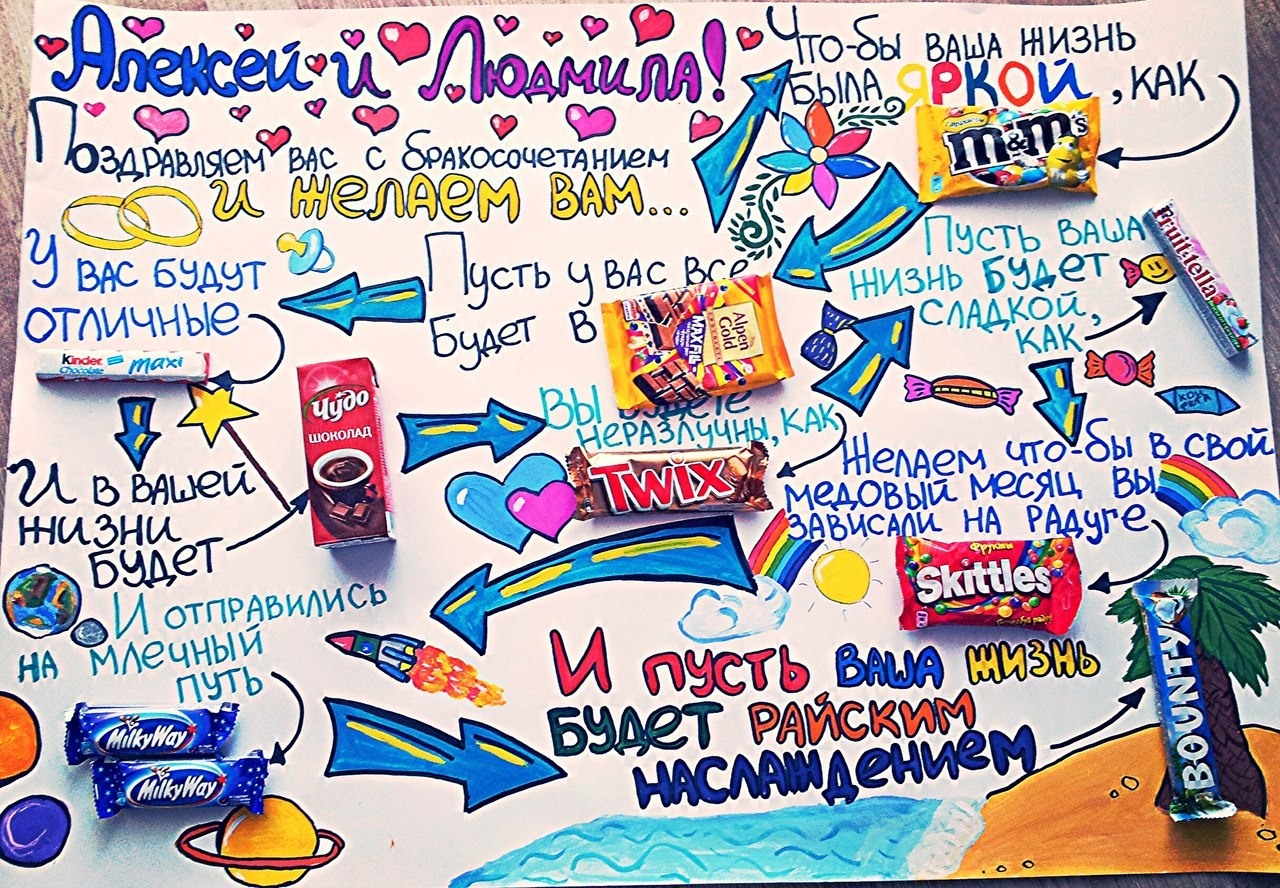 Алексей и Людмила!
Поздравляем вас с бракосочетанием
и желаем вам...
Что-бы ваша жизнь
была яркой, как
m&m's
Пусть у вас все
будет в
Alpen Gold
MAX FUN
У вас будут
отличные
kinder
Chocolate maxi
И в вашей
жизни
будет
Чудо
ШОКОЛАД
Вы будете
неразлучны, как
TWIX
Пусть ваша
жизнь будет
сладкой,
как
Fruittella
Желаем что-бы в свой
медовый месяц вы
зависали на радуге
Фрукты
Skittles
И отправились
на млечный
путь
MilkyWay
MilkyWay
И пусть ваша жизнь
будет райским
наслаждением
BOUNTY